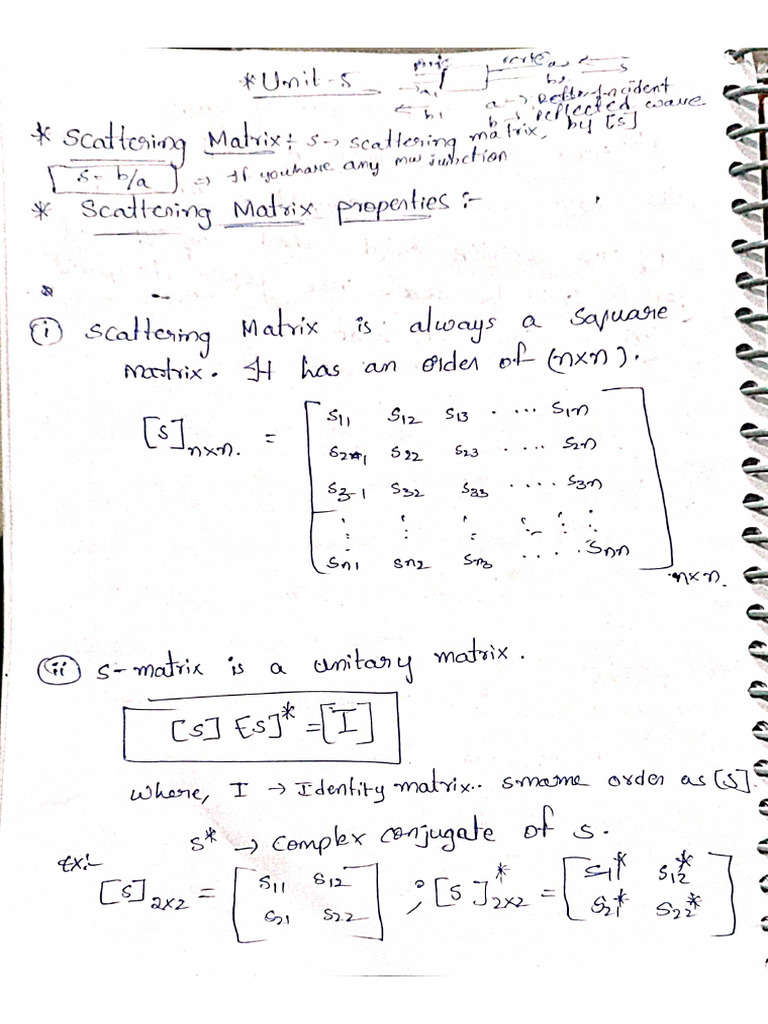 * Unit-5
a₁
b₁
a₂
b₂
a → Incident
b → reflected wave
* Scattering Matrix :- s → scattering matrix, by [s]
s = b/a ⇒ If you have any mw junction
* Scattering Matrix properties :-
(i) Scattering Matrix is always a Sqruare
matrix. It has an order of (n×n).
[S]n×n. = [ S11 S12 S13 ..... S1n
S21 S22 S23 ..... S2n
S3-1 S32 S33 ..... S3n
: : : : : :
Sn1 Sn2 Sn3 ..... Snn ] n×n.
(ii) S-matrix is a unitary matrix.
[S] [S]* = [I]
where, I → Identity matrix.. same order as [S].
S* → Complex conjugate of S.
Ex:-
[S]2×2 = [ S11 S12 ; [S]*2×2 = [ S11* S12*
S21 S22 ] S21* S22* ]